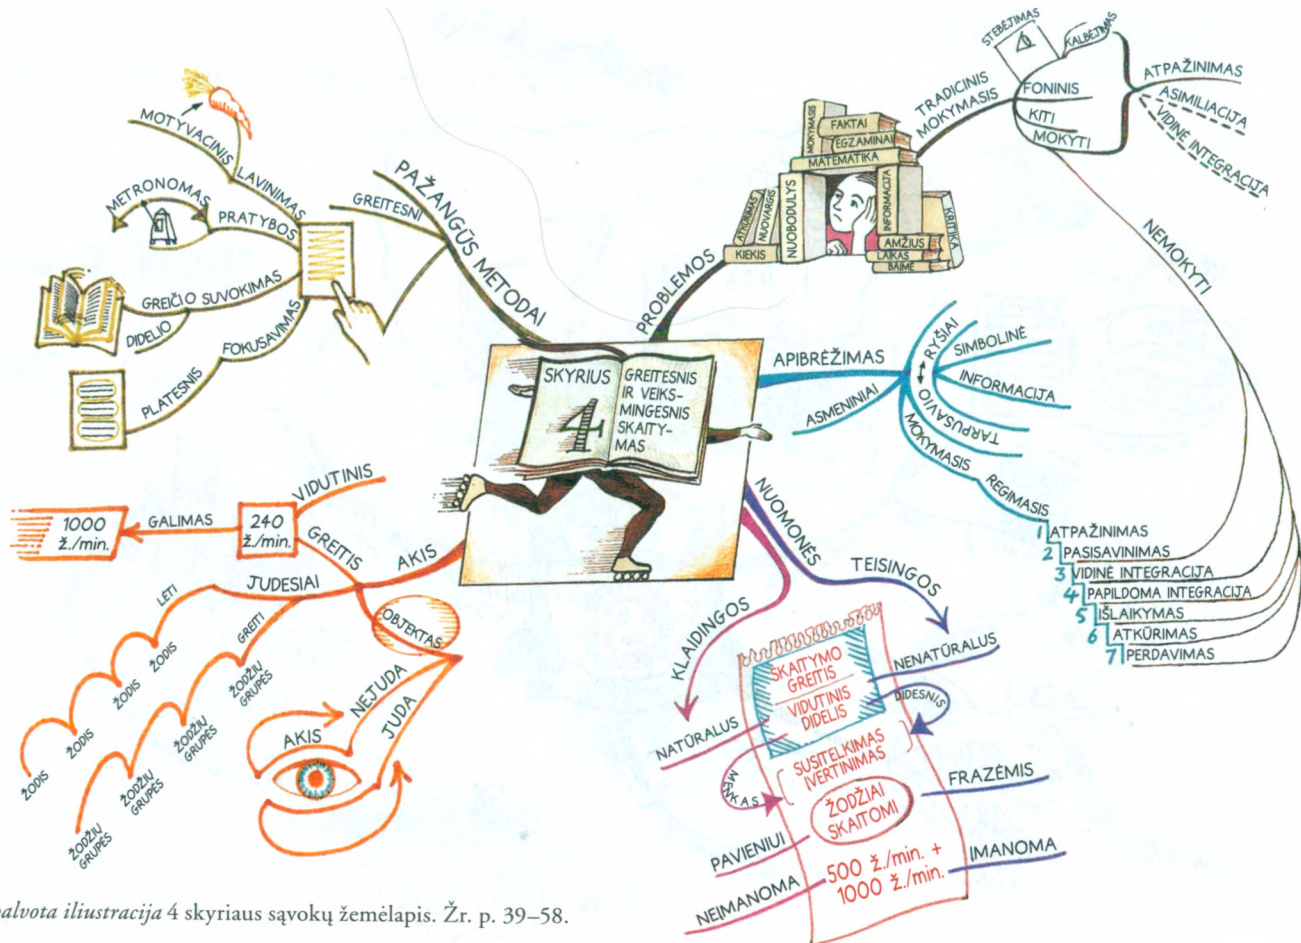 SKYRIUS
4
GREITESNIS
IR VEIKS-
MINGESNIS
SKAITY-
MAS
PAŽANGŪS METODAI
GREITESNI
LAVINIMAS
MOTYVACINIS
PRATYBOS
METRONOMAS
GREIČIO SUVOKIMAS
DIDELIO
FOKUSAVIMAS
PLATESNIS
PROBLEMOS
MOKYMASIS
FAKTAI
EGZAMINAI
MATEMATIKA
ATKŪRIMAS
NUOVARGIS
KIEKIS
NUOBODULYS
INFORMACIJA
KRITIKA
AMŽIUS
LAIKAS
BAIMĖ
TRADICINIS
MOKYMASIS
STEBĖJIMAS
KALBĖJIMAS
FONINIS
KITI
MOKYTI
ATPAŽINIMAS
ASIMILIACIJA
VIDINĖ INTEGRACIJA
NEMOKYTI
APIBRĖŽIMAS
ASMENINIAI
RYŠIAI
TARPUSAVIO
SIMBOLINĖ
INFORMACIJA
MOKYMASIS
REGIMASIS
1 ATPAŽINIMAS
2 PASISAVINIMAS
3 VIDINĖ INTEGRACIJA
4 PAPILDOMA INTEGRACIJA
5 IŠLAIKYMAS
6 ATKŪRIMAS
7 PERDAVIMAS
NUOMONĖS
TEISINGOS
KLAIDINGOS
SKAITYMO
GREITIS
VIDUTINIS
DIDELIS
NENATŪRALUS
DIDESNIS
NATŪRALUS
MENKAS
SUSITELKIMAS
ĮVERTINIMAS
ŽODŽIAI
SKAITOMI
FRAZĖMIS
PAVIENIUI
500 ž./min. +
1000 ž./min.
IMANOMA
NEIMANOMA
AKIS
GREITIS
VIDUTINIS
240
ž./min.
GALIMAS
1000
ž./min.
JUDESIAI
LĖTI
ŽODIS
ŽODIS
ŽODIS
ŽODIS
GREITI
ŽODŽIŲ
GRUPĖS
ŽODŽIŲ
GRUPĖS
ŽODŽIŲ
GRUPĖS
ŽODŽIŲ
GRUPĖS
OBJEKTAS
NEJUDA
JUDA
AKIS
alvota iliustracija 4 skyriaus sąvokų žemėlapis. Žr. p. 39–58.